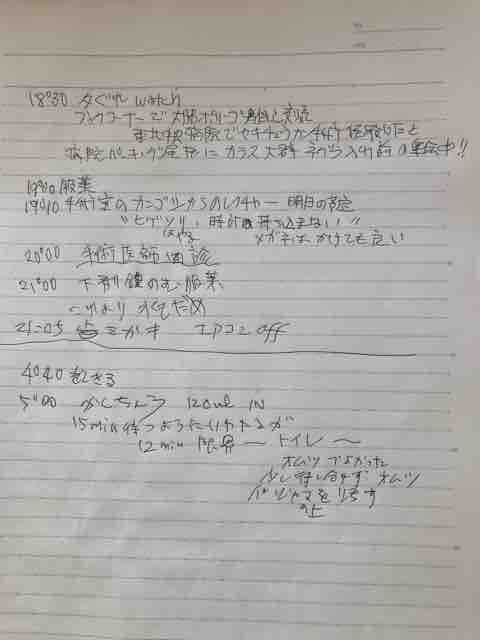 18:30 夕ぐれ watch
ブックコーナーで大腸ポリープ 男性と対応
病院でセキチュウカン手術 経験したと
病院パーキング屋根に カラス大群 ネグラ入り前の集会中!!
19:00 服薬
19:10 手術室のカンゴシからのレクチャー 明日の予定
"ヒゲソリ、時計は持ち込まない"
メガネは かけても良い
20:00 手術医師回診
21:00 下剤 錠のむ 服薬
これより 水でだめ
21:05 歯ミガキ エアコン off
4:40 起きる
5:00 かんちょう 120ml IN
15min 待つようにいわれたるが
12min 限界 〜 トイレ 〜
オムツでよかった
少し 間に合わず オムツ
パジャマを 汚す